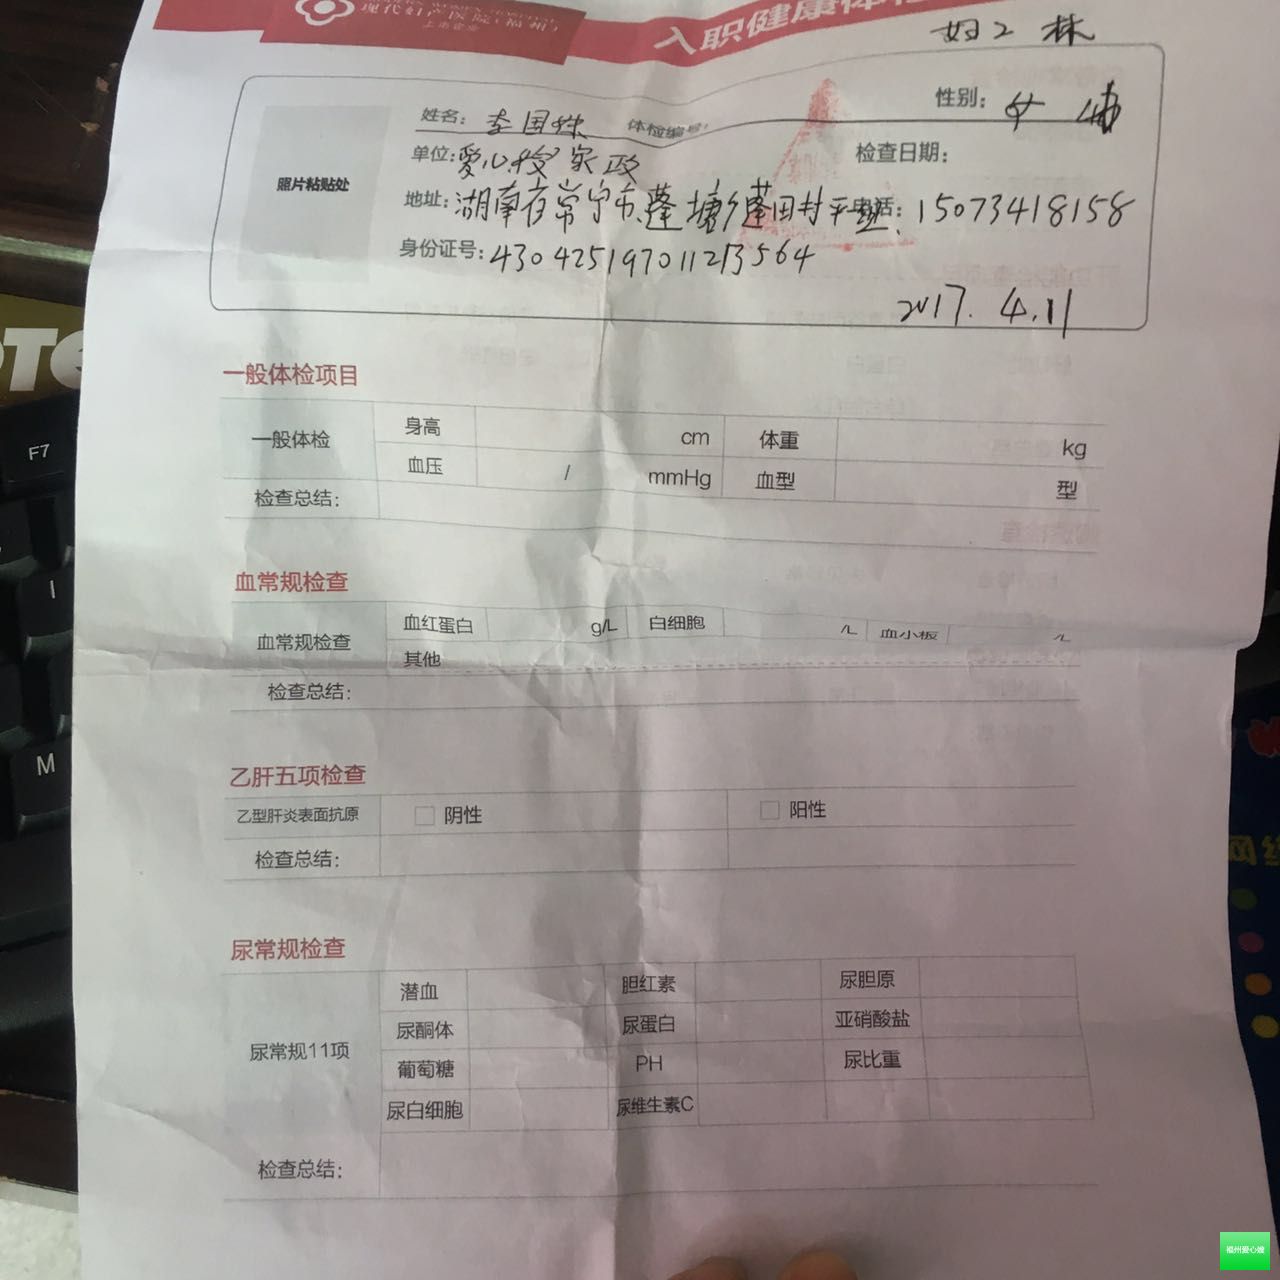 现代妇产医院(福州)
上市企业
入职健康体检
妇2 林
姓名: 李国姝 体检编号: 性别: 女
单位: 爱心嫂家政 检查日期:
地址: 湖南省常宁市蓬塘乡蓬田村 电话: 15073418158
身份证号: 430425197011213564
照片粘贴处
2017. 4.11
一般体检项目
一般体检 身高 cm 体重 kg
血压 / mmHg 血型 型
检查总结:
血常规检查
血常规检查 血红蛋白 g/L 白细胞 /L 血小板 /L
其他
检查总结:
乙肝五项检查
乙型肝炎表面抗原 □ 阴性 □ 阳性
检查总结:
尿常规检查
尿常规11项 潜血 胆红素 尿胆原
尿酮体 尿蛋白 亚硝酸盐
葡萄糖 PH 尿比重
尿白细胞 尿维生素C
检查总结:
F7
I
M
福州爱心嫂